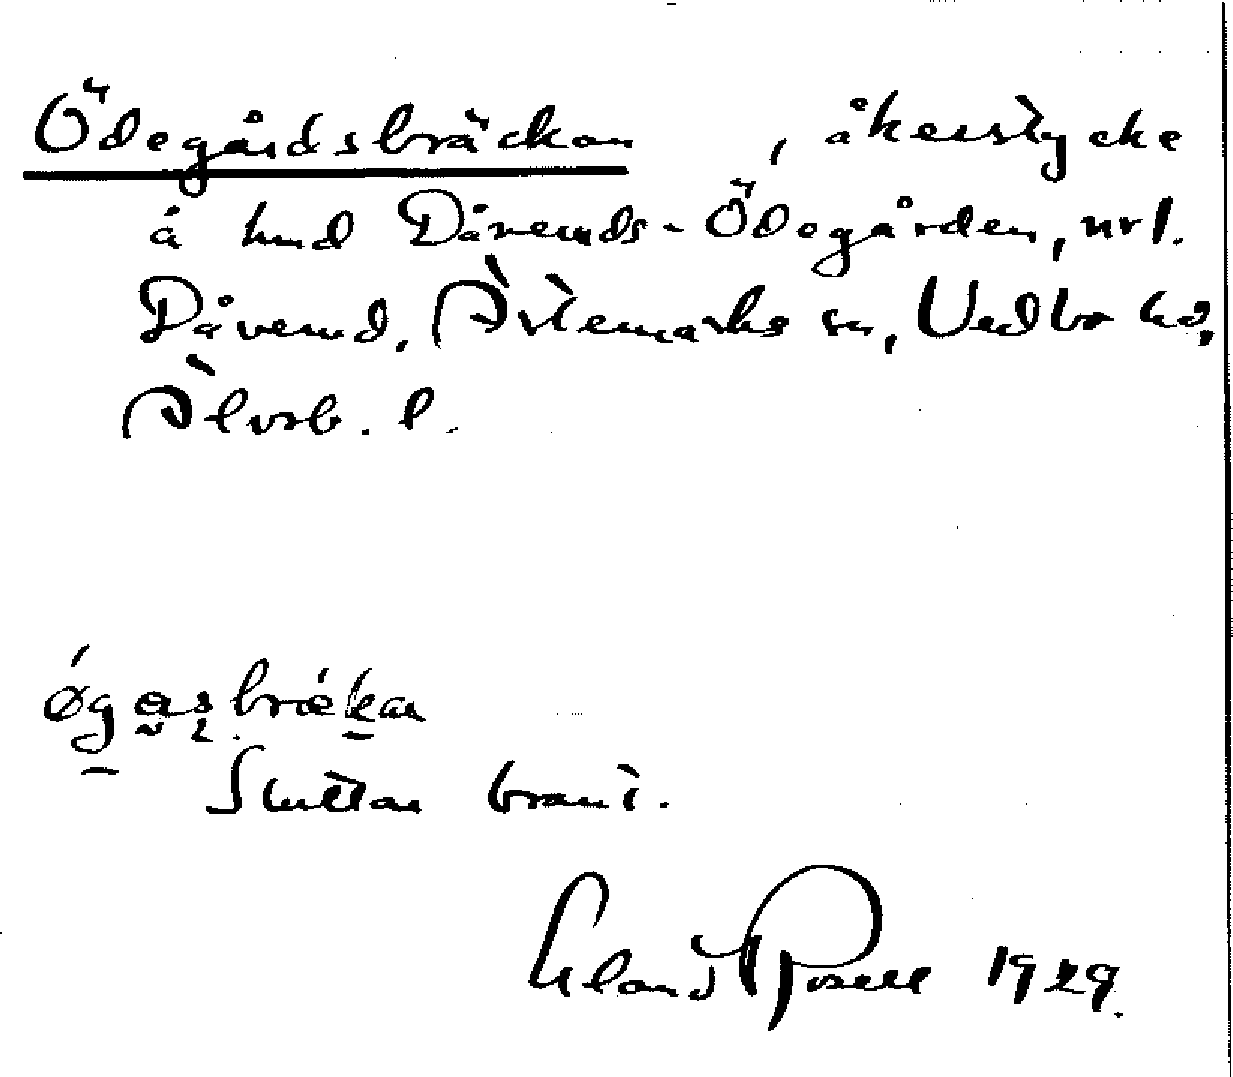 Ödegårdsbräckan, åkerstycke
å hmd Dåverud-Ödegården, nr 1.
Dåverud, Ärtemarks sn, Vedbo hd,
Älvsb. l.
øgasbrækan
Sluttar brant.
Erland Rosell 1929.